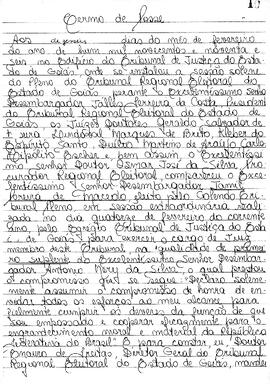 Termo de Posse
Aos dezesseis dias do mês de fevereiro
do ano de hum mil novecentos e noventa e
seis no Edifício do Tribunal de Justiça do Esta-
do de Goiás, onde se instalou a sessão solene
do Pleno do Tribunal Regional Eleitoral do
Estado de Goiás, perante o Excelentíssimo Senhor
Desembargador Jalles Ferreira da Costa, Presidente
do Tribunal Regional Eleitoral do Estado de
Goiás, os Juízes Doutores Geraldo Salvador de
Moura, Marques de Brito, Kleber do
Espírito Santo, Martins de Araújo, Carlos
e bem assim o Excelentís-
simo Senhor Doutor José da Silva, Pro-
curador Regional Eleitoral, compareceu o Exce-
lentíssimo Senhor Desembargador Jamil
Pereira de Macedo, eleito pelo Colendo Tri-
bunal Pleno em sessão extraordinária reali-
zada no dia quatorze de fevereiro do corrente
ano, pelo Egrégio Tribunal de Justiça do Esta-
do de Goiás para exercer o cargo de Juiz
membro deste Tribunal, na qualidade de primeiro
suplente do Excelentíssimo Senhor Desembar-
gador Antonio Nery da Silva, o qual prestou
o compromisso que se segue: "Declaro solene-
mente assumir o compromisso de honra de en-
vidar todos os esforços ao meu alcance para
fielmente cumprir os deveres da função de que
sou empossado e cooperar eficazmente para o
engrandecimento moral e material da República
Federativa do Brasil". E para constar, eu, Doutor
de Freitas, Diretor Geral do Tribunal
Regional Eleitoral do Estado de Goiás, mandei